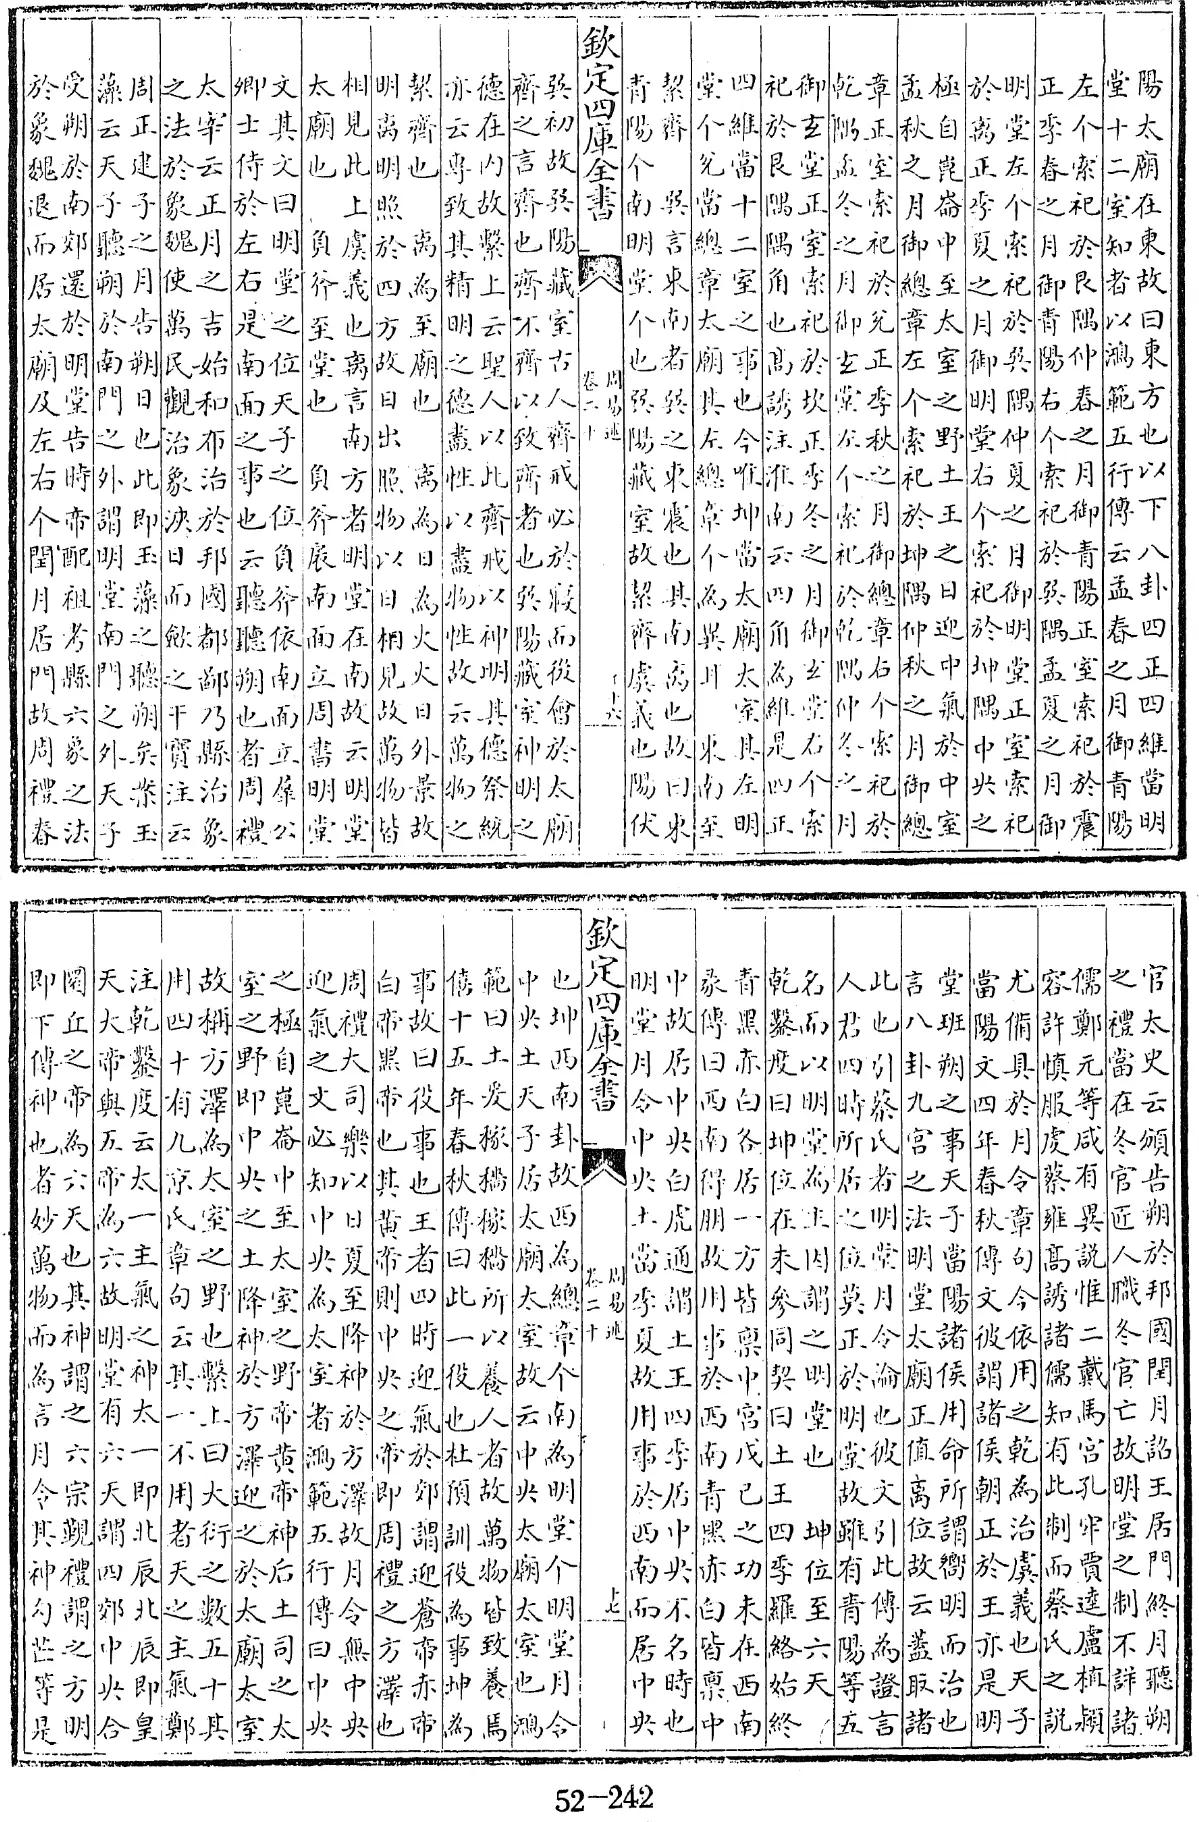 陽太廟在東故曰東方也以下八卦四正四維當明
堂十二室知者以鴻範五行傳云孟春之月御青陽
左个索祀於艮隅仲春之月御青陽正室索祀於震
正季春之月御青陽右个索祀於巽隅孟夏之月御
明堂左个索祀於巽隅仲夏之月御明堂正室索祀
於离正季夏之月御明堂右个索祀於坤隅中央之
極自崑崙中至太室之野土王之日迎中氣於中室
孟秋之月御總章左个索祀於坤隅仲秋之月御總
章正室索祀於兌正季秋之月御總章右个索祀於
乾隅孟冬之月御玄堂左个索祀於乾隅仲冬之月
御玄堂正室索祀於坎正季冬之月御玄堂右个索
祀於艮隅隅角也高誘注淮南云四角為維是四正
四維當十二室之事也今唯坤當太廟太室其左明
堂个兌當總章太廟其左總章个為異耳　東南至
絜齊　巽言東南者巽之東震也其南离也故曰東
青陽个南明堂个也巽陽藏室故絜齊虞義也陽伏
欽定四庫全書
周易述
卷二十
十六
巽初故巽陽藏室古人齊戒必於寢而後會於太廟
齊之言齊也齊不齊以致齊者也巽陽藏室神明之
德在内故繫上云聖人以此齊戒以神明其德祭統
亦云專致其精明之德盡性以盡物性故云萬物之
絜齊也　离為至廟也　离為日為火火日外景故
明离明照於四方故日出照物以日相見故萬物皆
相見此上虞義也离言南方者明堂在南故云明堂
太廟也　負斧至堂也　負斧扆南面立周書明堂
文其文曰明堂之位天子之位負斧依南面立羣公
卿士侍於左右是南面之事也云聽聽朔也者周禮
太宰云正月之吉始和布治於邦國都鄙乃縣治象
之法於象魏使萬民觀治象浹日而斂之干寶注云
周正建子之月告朔日也此即玉藻之聽朔矣案玉
藻云天子聽朔於南門之外謂明堂南門之外天子
受朔於南郊還於明堂告時帝配祖考縣六象之法
於象魏退而居太廟及左右个閏月居門故周禮春
官太史云頒告朔於邦國閏月詔王居門終月聽朔
之禮當在冬官匠人職冬官亡故明堂之制不詳諸
儒鄭元等咸有異說惟二戴馬宮孔牢賈逵盧植潁
容許慎服虔蔡雍高誘諸儒知有此制而蔡氏之說
尤備具於月令章句今依用之乾為治虞義也天子
當陽文四年春秋傳文彼謂諸侯朝正於王亦是明
堂班朔之事天子當陽諸侯用命所謂嚮明而治也
言八卦九宮之法明堂太廟正值离位故云蓋取諸
此也引蔡氏者明堂月令論也彼文引此傳為證言
人君四時所居之位莫正於明堂故雖有青陽等五
名而以明堂為主因謂之明堂也　坤位至六天
乾鑿度曰坤位在未參同契曰土王四季羅絡始終
青黑赤白各居一方皆禀中宮戊己之功未在西南
彖傳曰西南得朋故用事於西南青黑赤白皆禀中
中故居中央白虎通謂土王四季居中央不名時也
明堂月令中央土當季夏故用事於西南而居中央
欽定四庫全書
周易述
卷二十
十七
也坤西南卦故西為總章个南為明堂个明堂月令
中央土天子居太廟太室故云中央太廟太室也鴻
範曰土爰稼穡稼穡所以養人者故萬物皆致養焉
僖十五年春秋傳曰此一役也杜預訓役為事坤為
事故曰役事也王者四時迎氣於郊謂迎蒼帝赤帝
白帝黑帝也其黄帝則中央之帝即周禮之方澤也
周禮大司樂以日夏至降神於方澤故月令無中央
迎氣之文必知中央為太室者鴻範五行傳曰中央
之極自崑崙中至太室之野帝黄帝神后土司之太
室之野即中央之土降神於方澤迎之於太廟太室
故稱方澤為太室之野也繫上曰大衍之數五十其
用四十有九京氏章句云其一不用者天之主氣鄭
注乾鑿度云太一主氣之神太一即北辰北辰即皇
天大帝與五帝為六故明堂有六天謂四郊中央合
圜丘之帝為六天也其神謂之六宗覲禮謂之方明
即下傳神也者妙萬物而為言月令其神勾芒等是
52-242